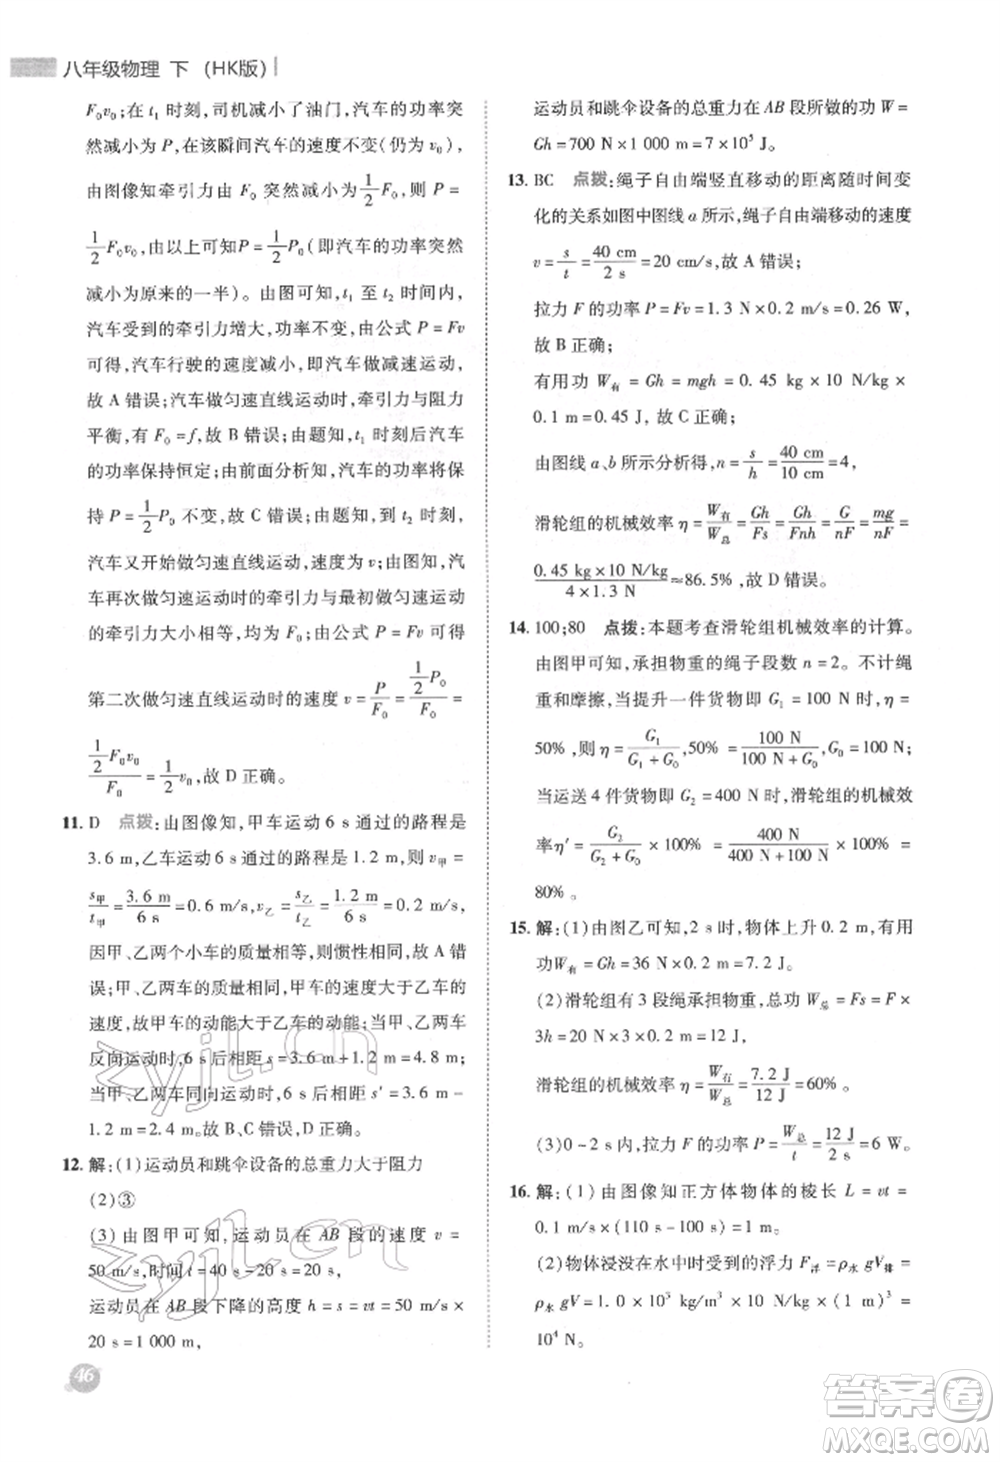 八年级物理 下 (HK版)
F₀v₀;在 t₁ 时刻,司机减小了油门,汽车的功率突
然减小为 P,在该瞬间汽车的速度不变(仍为 v₀),
由图像知牵引力由 F₀ 突然减小为 1/2 F₀,则 P =
1/2 F₀v₀,由以上可知P = 1/2 P₀(即汽车的功率突然
减小为原来的一半)。由图可知,t₁ 至 t₂ 时间内,
汽车受到的牵引力增大,功率不变,由公式 P = Fv
可得,汽车行驶的速度减小,即汽车做减速运动,
故 A 错误;汽车做匀速直线运动时,牵引力与阻力
平衡,有 F₀ = f,故 B 错误;由题知,t₁ 时刻后汽车
的功率保持恒定;由前面分析知,汽车的功率将保
持 P = 1/2 P₀ 不变,故 C 错误;由题知,t₂ 时刻,
汽车又开始做匀速直线运动,速度为 v;由图知,汽
车再次做匀速运动时的牵引力与最初做匀速运动时
的牵引力大小相等,为 F₀;由公式 P = Fv 可得
第二次做匀速直线运动时的速度 v = P/F₀ = (1/2 P₀)/F₀ =
(1/2 F₀v₀)/F₀ = 1/2 v₀,故 D 正确。
11. D 点拨:由图像知,甲车运动 6 s 通过的路程是
3.6 m,乙车运动 6 s 通过的路程是 1.2 m,则 v甲 =
s甲/t甲 = 3.6 m/6 s = 0.6 m/s,v乙 = s乙/t乙 = 1.2 m/6 s = 0.2 m/s,
因甲、乙两个小车的质量相等,则惯性相同,故 A 错
误;甲、乙两车的质量相同,甲车的速度大于乙车的
速度,故甲车的动能大于乙车的动能;当甲、乙两车
反向运动时,6 s后相距 s = 3.6 m + 1.2 m = 4.8 m;
当甲、乙两车同向运动时,6 s后相距 s′ = 3.6 m -
1.2 m = 2.4 m。故 B、C 错误,D 正确。
12. 解:(1)运动员和跳伞设备的总重力大于阻力
(2)③
(3)由图甲可知,运动员在 AB 段的速度 v =
50 m/s,时间 t = 40 s - 20 s = 20 s,
运动员在 AB 段下降的高度 h = s = vt = 50 m/s ×
20 s = 1 000 m,
46
运动员和跳伞设备的总重力在 AB 段所做的功 W =
Gh = 700 N × 1 000 m = 7 × 10⁵ J。
13. BC 点拨:绳子自由端竖直移动的距离随时间变
化的关系如图中图线 a 所示,绳子自由端移动的速度
v = s/t = 40 cm/2 s = 20 cm/s,故 A 错误;
拉力 F 的功率 P = Fv = 1.3 N × 0.2 m/s = 0.26 W,
故 B 正确;
有用功 W有 = Gh = mgh = 0.45 kg × 10 N/kg ×
0.1 m = 0.45 J,故 C 正确;
由图线 a、b 所示分析得,n = s/h = 40 cm/10 cm = 4,
滑轮组的机械效率 η = W有/W总 = Gh/Fs = Gh/Fnh = G/nF = mg/nF =
0.45 kg × 10 N/kg/4 × 1.3 N ≈ 86.5%,故 D 错误。
14. 100;80 点拨:本题考查滑轮组机械效率的计算。
由图甲可知,承担物重的绳子段数 n = 2。不计绳
重和摩擦,当提升一件货物即 G₁ = 100 N 时,η =
50%,则 η = G₁/(G₁ + G₀),50% = 100 N/(100 N + G₀),G₀ = 100 N;
当运送 4 件货物即 G₂ = 400 N时,滑轮组的机械效
率η′ = G₂/(G₂ + G₀) × 100% = 400 N/(400 N + 100 N) × 100% =
80%。
15. 解:(1)由图乙可知,2 s 时,物体上升0.2 m,有用
功W有 = Gh = 36 N × 0.2 m = 7.2 J。
(2)滑轮组有 3 段绳承担物重,总功 W总 = Fs = F ×
3h = 20 N × 3 × 0.2 m = 12 J,
滑轮组的机械效率 η = W有/W总 = 7.2 J/12 J = 60%。
(3)0 - 2 s 内,拉力 F 的功率 P = W总/t = 12 J/2 s = 6 W。
16. 解:(1)由图像知正方体物体的棱长 L = vt =
0.1 m/s × (110 s - 100 s) = 1 m。
(2)物体浸没在水中时受到的浮力 F浮 = ρ水 gV排 =
ρ水 gV = 1.0 × 10³ kg/m³ × 10 N/kg × (1 m)³ =
10⁴ N。
zyjl.cn
zyjl.cn
答案圈
MXQE.COM